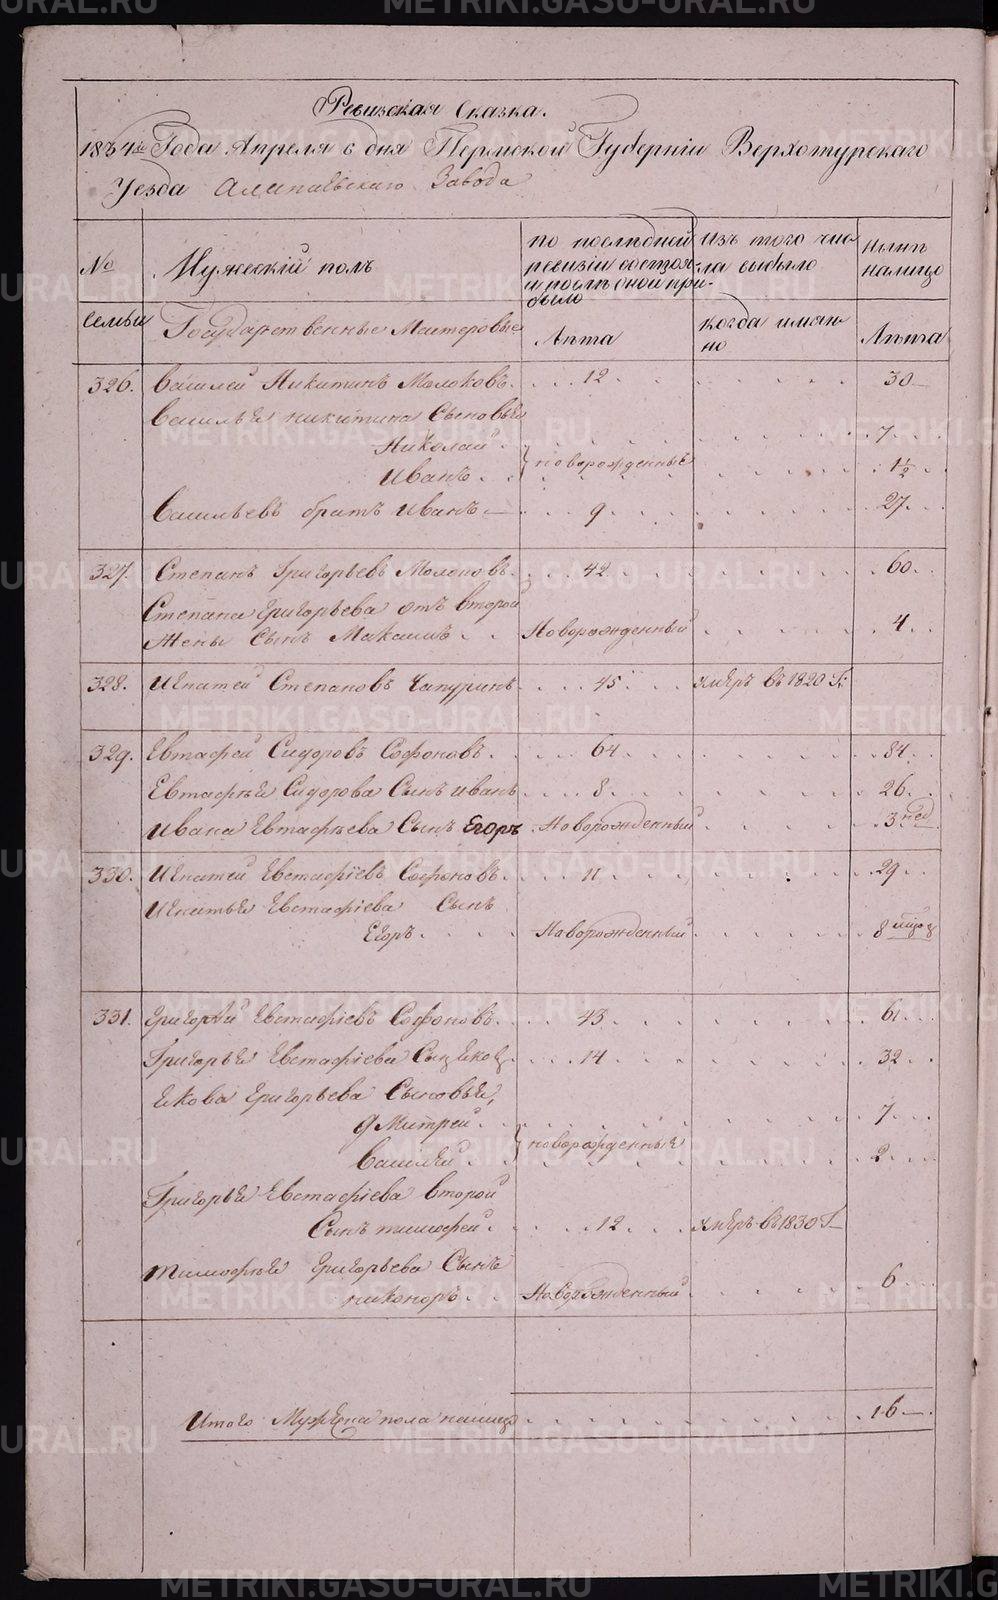 Ревизская Сказка.
1834го Года Апреля 6 дня Пермской Губернiи Верхотурскаго
Уезда Алапаевскаго Завода
№
Семьи
Мужескiй полъ
Государственные Мастеровые
по последней
ревизiи состоя-
и после оной при-
было
Лѣта
Изъ того чис-
ла выбыло
когда имян-
но
Нынѣ
налицо
Лѣта
326. Василей Никитинъ Молоковъ. 12 30
Василья Никитина Сыновья
Николай 7
новорожденные
Иванъ 1½
Васильевъ братъ Иванъ 9 27
327. Степанъ Григорьевъ Молоковъ 42 60
Степана Григорьева отъ второй
жены Сынъ Максимъ Новорожденный 4
328. Игнатей Степановъ Чапуринъ 45 умеръ въ 1820 Г:
329. Евтафей Сидоровъ Софоновъ 64 84
Евтафья Сидорова Сынъ Иванъ 8 26
Ивана Евтафьева Сынъ Егоръ Новорожденный 3 нед
330. Игнатей Евстафiевъ Софоновъ 11 29
Игнатья Евстафiева Сынъ
Егоръ Новорожденный 8 мѣсяц
331. Григорiй Евстафiевъ Софоновъ 43 61
Григорья Евстафiева Сынъ Яков 14 32
Якова Григорьева Сыновья,
Дмитрей 7
новорожденные
Василей 2
Григорья Евстафiева второй
Сынъ тимофей 12 умеръ въ 1830 Г
тимофея Григорьева Сынъ
никоноръ Новорожденный 6
Итого Мужеска пола налицо 16
METRIKI.GASO-URAL.RU